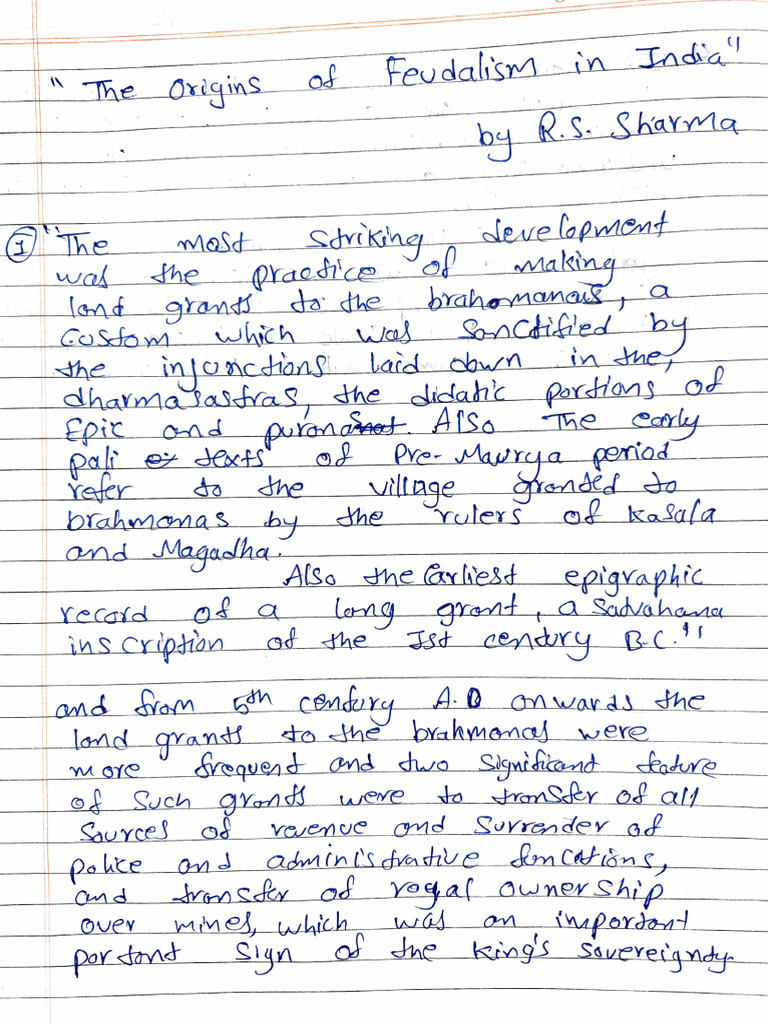 "The Origins of Feudalism in India"
by R.S. Sharma
① "The most striking development
was the practice of making
land grants to the brahomanas, a
custom which was sanctified by
the injunctions laid down in the,
dharmasastras, the didatic portions of
Epic and puranas. Also The early
pali texts of Pre-Maurya period
refer to the village granted to
brahmanas by the rulers of Kasala
and Magadha.
Also the Earliest epigraphic
record of a long grant, a Satvahana
inscription of the Ist century B.C."
and from 5th century A.D onwards the
land grants to the brahmanas were
more frequent and two significant feature
of such grants were to transfer of all
sources of revenue and surrender of
police and administrative foncations,
and transfer of royal ownership
over mines, which was an important
portant sign of the king's sovereignty.